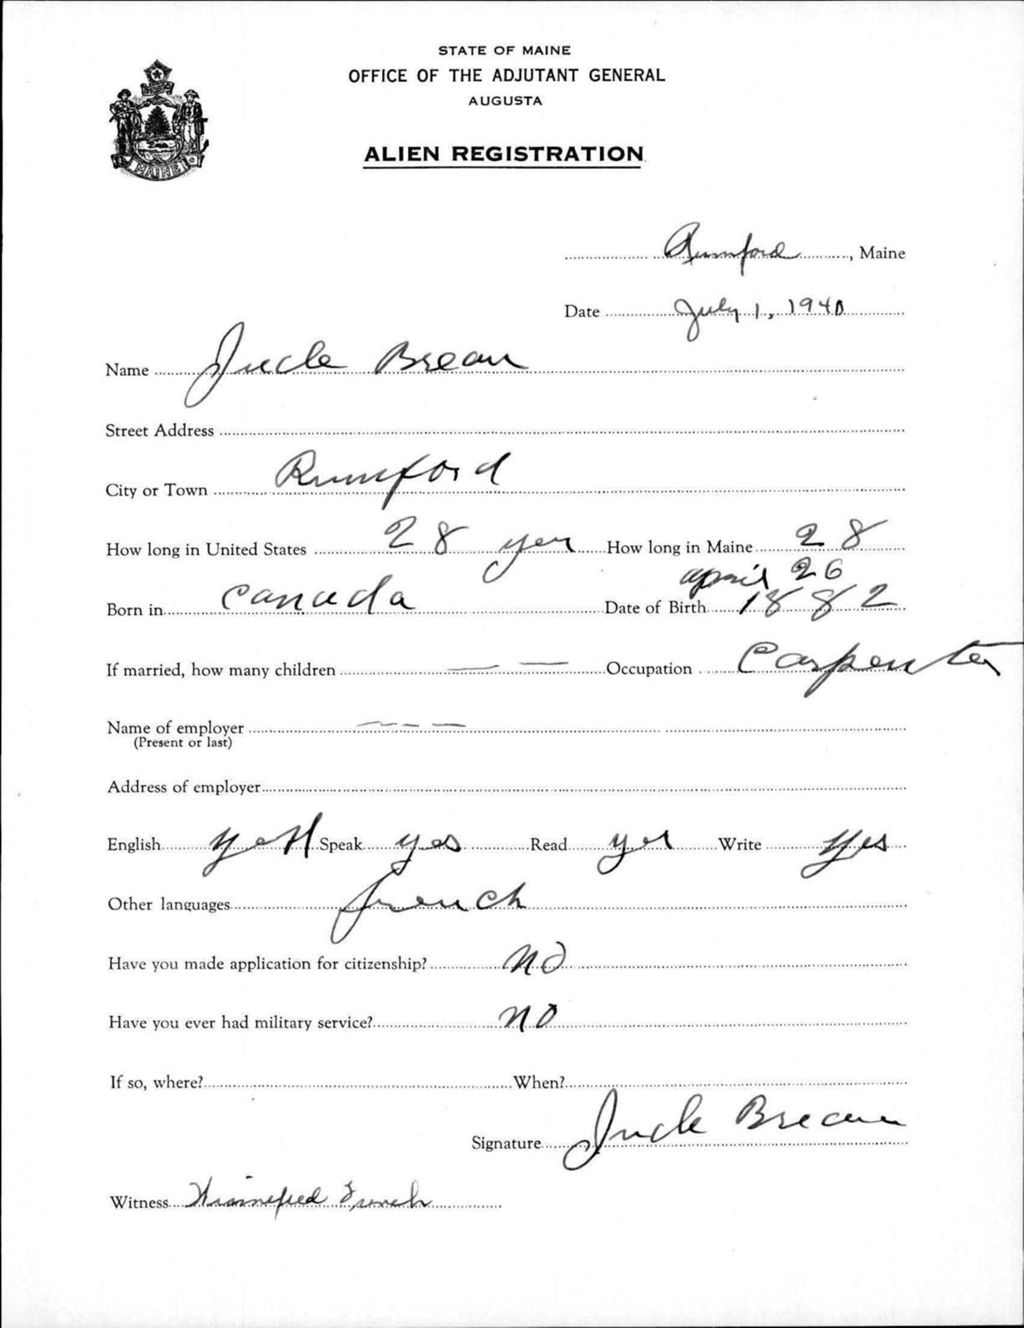 STATE OF MAINE
OFFICE OF THE ADJUTANT GENERAL
AUGUSTA
ALIEN REGISTRATION
MAINE
Rumford, Maine
Date July 1, 1940
Name Jucle Breau
Street Address
City or Town Rumford
How long in United States 28 yer How long in Maine 28
april 26
Born in Canada Date of Birth 1882
If married, how many children — — Occupation Carpenter
Name of employer — — —
(Present or last)
Address of employer
English yes Speak yes Read yes Write yes
Other languages french
Have you made application for citizenship? NO
Have you ever had military service? NO
If so, where? When?
Signature Jucle Breau
Witness Winnefred French